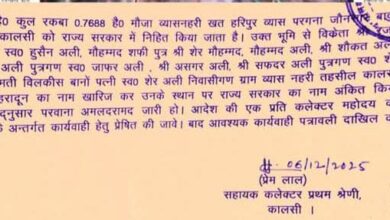 है0 कुल रकबा 0.7688 है0 मौजा व्यासनहरी खत हरिपुर व्यास परगना जौनसार
कालसी को राज्य सरकार में निहित किया जाता है। उक्त भूमि से विक्रेता श्री
स्व0 हुसैन अली, मौहम्मद शफी पुत्र श्री शेर मौहम्मद, मौहम्मद अली, श्री शौकत अली
अली पुत्रगण स्व0 जाफर अली , श्री असगर अली, श्री सफदर अली पुत्रगण स्व0 शेर
मती विलकीस बानों पत्नी स्व0 शेर अली निवासीगण ग्राम व्यास नहरी तहसील कालसी
हरादून का नाम खारिज कर उनके स्थान पर राज्य सरकार का नाम अंकित किया
दनुसार परवाना अमलदरामद जारी हो। आदेश की एक प्रति कलेक्टर महोदय
अन्तर्गत कार्यवाही हेतु प्रेषित की जावे। बाद आवश्यक कार्यवाही पत्रावली दाखिल
06/12/2025
(प्रेम लाल)
सहायक कलेक्टर प्रथम श्रेणी,
कालसी ।